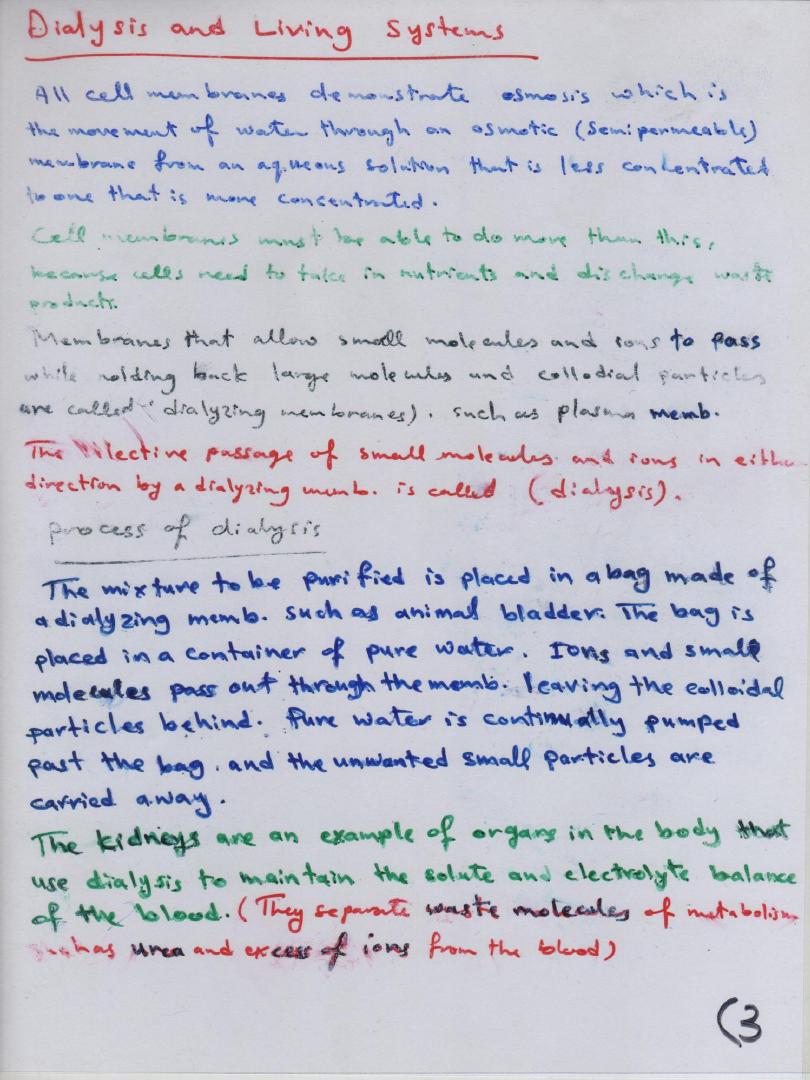 Dialysis and Living Systems
All cell membranes demonstrate osmosis which is
the movement of water through an osmotic (Semipermeable)
membrane from an aqueous solution that is less concentrated
to one that is more concentrated.
Cell membranes must be able to do more than this,
because cells need to take in nutrients and discharge waste
products.
Membranes that allow small molecules and ions to pass
while holding back large molecules and collodial particles
are called (dialyzing membranes). such as plasma memb.
The selective passage of small molecules and ions in either
direction by a dialyzing memb. is called (dialysis).
process of dialysis
The mixture to be purified is placed in a bag made of
a dialyzing memb. such as animal bladder. The bag is
placed in a container of pure water. Ions and small
molecules pass out through the memb. leaving the colloidal
particles behind. Pure water is continually pumped
past the bag. and the unwanted small particles are
carried away.
The kidneys are an example of organs in the body that
use dialysis to maintain the solute and electrolyte balance
of the blood. (They separate waste molecules of metabolism
such as urea and excess of ions from the blood)
(3